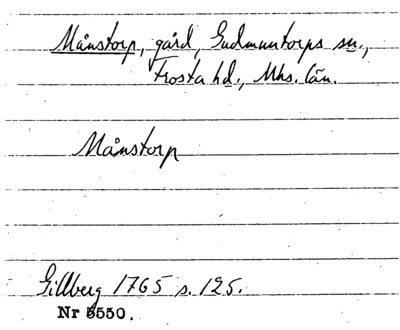 Månstorp, gård, Gudmuntorps sn.,
Frosta hd., Mhs. län.
Månstorp
Gillberg 1765 s. 125.
Nr 5550.